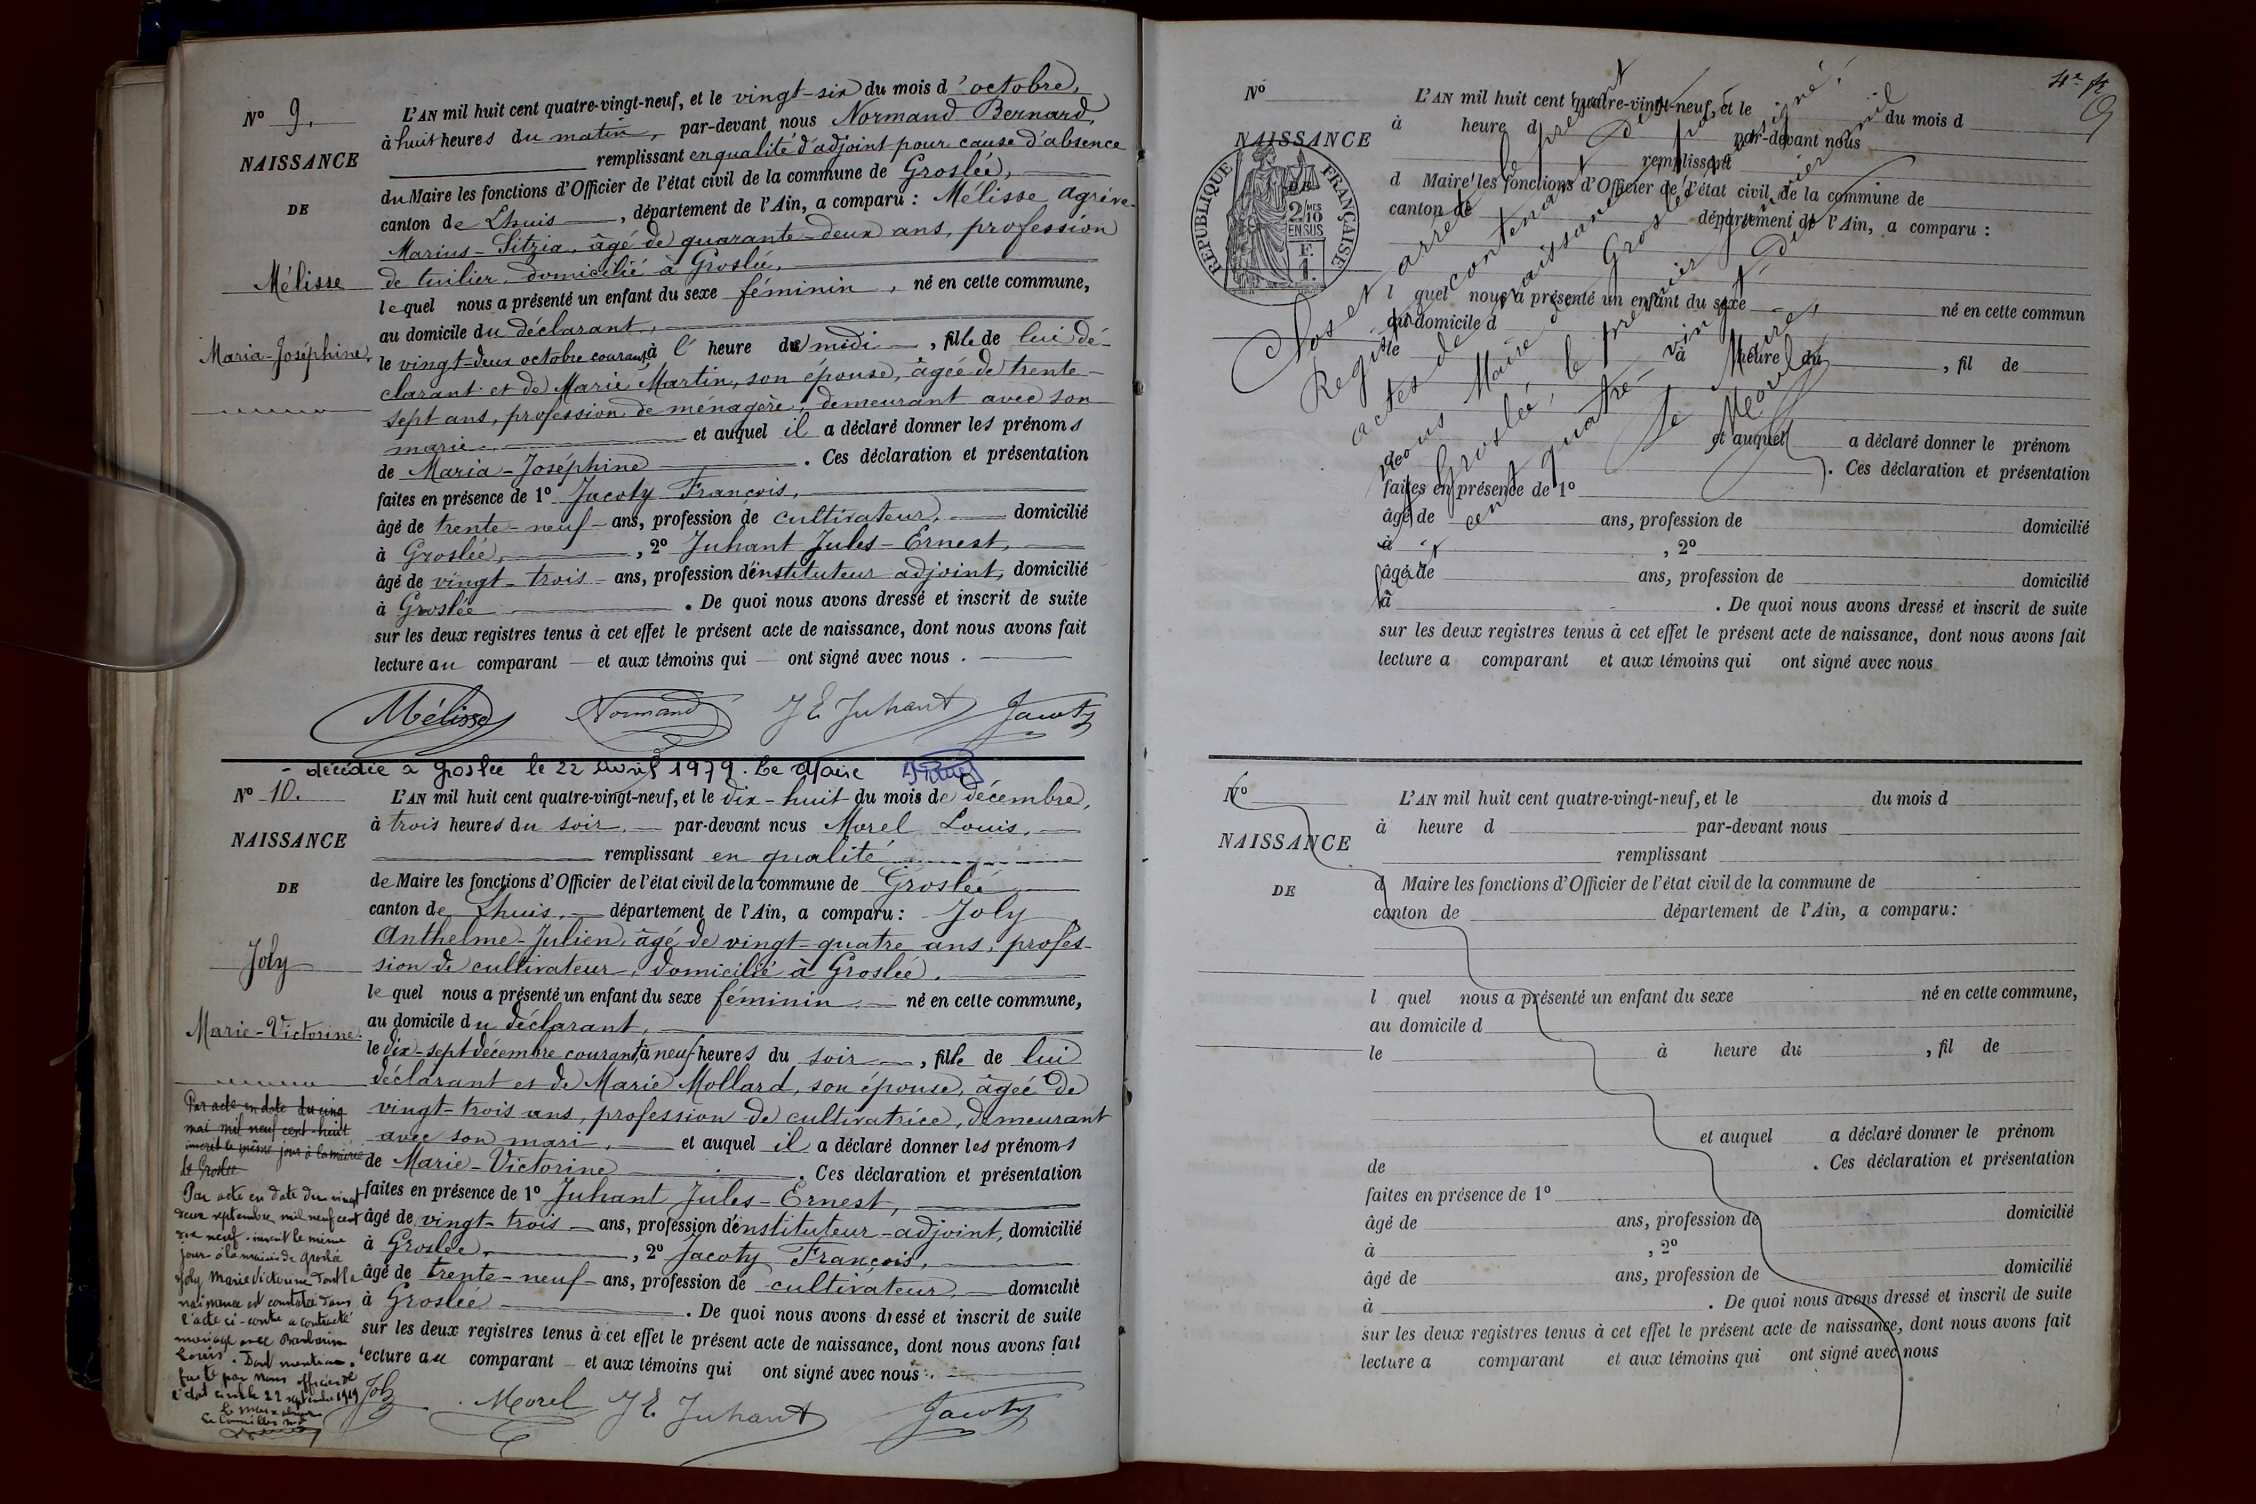 N° 9.
NAISSANCE
DE
Mélisse
Maria-Joséphine.
L'AN mil huit cent quatre-vingt-neuf, et le vingt-six du mois d'octobre,
à huit heures du matin, par-devant nous Normand Bernard,
remplissant en qualité d'adjoint pour cause d'absence
du Maire les fonctions d'Officier de l'état civil de la commune de Groslée,
canton de Lhuis, département de l'Ain, a comparu : Mélisse Agrève-
Marius-Sitzia, âgé de quarante-deux ans, profession
de tuilier, domicilié à Groslée,
lequel nous a présenté un enfant du sexe féminin, né en cette commune,
au domicile du déclarant,
le vingt-deux octobre courant, à l' heure de midi, fille de lui dé-
clarant et de Marie Martin, son épouse, âgée de trente-
sept ans, profession de ménagère, demeurant avec son
marie et auquel il a déclaré donner les prénoms
de Maria-Joséphine. Ces déclaration et présentation
faites en présence de 1° Jacoty François,
âgé de trente-neuf ans, profession de cultivateur, domicilié
à Groslée, 2° Juhant Jules-Ernest,
âgé de vingt-trois ans, profession d'instituteur adjoint, domicilié
à Groslée. De quoi nous avons dressé et inscrit de suite
sur les deux registres tenus à cet effet le présent acte de naissance, dont nous avons fait
lecture au comparant et aux témoins qui ont signé avec nous.
Mélisse Normand J E Juhant Jacoty
- décédée à Groslée le 22 Avril 1979. Le Maire
N° 10.
NAISSANCE
DE
Joly
Marie-Victorine.
L'AN mil huit cent quatre-vingt-neuf, et le dix-huit du mois de décembre,
à trois heures du soir, par-devant nous Morel Louis,
remplissant en qualité
de Maire les fonctions d'Officier de l'état civil de la commune de Groslée
canton de Lhuis, département de l'Ain, a comparu : Joly
Anthelme-Julien, âgé de vingt-quatre ans, profes-
sion de cultivateur, domicilié à Groslée,
lequel nous a présenté un enfant du sexe féminin, né en cette commune,
au domicile du déclarant,
le dix-sept décembre courant, à neuf heures du soir, fille de lui
déclarant et de Marie Mollard, son épouse, âgée de
vingt-trois ans, profession de cultivatrice, demeurant
avec son mari, et auquel il a déclaré donner les prénoms
de Marie-Victorine. Ces déclaration et présentation
faites en présence de 1° Juhant Jules-Ernest,
âgé de vingt-trois ans, profession d'instituteur-adjoint, domicilié
à Groslée, 2° Jacoty François,
âgé de trente-neuf ans, profession de cultivateur, domicilié
à Groslée. De quoi nous avons dressé et inscrit de suite
sur les deux registres tenus à cet effet le présent acte de naissance, dont nous avons fait
lecture au comparant et aux témoins qui ont signé avec nous.
Joly Morel J E. Juhant Jacoty
Par acte en date du cinq
mai mil neuf cent huit
inscrit le même jour à la mairie
de Groslée
Par acte en date du vingt
deux septembre mil neuf cent
dix neuf. inscrit le même
jour à la mairie de Groslée
Joly Marie Victorine dont la
naissance est constatée dans
l'acte ci-contre a contracté
mariage avec Barbarin
Louis. Dont mention
faite par nous officier de
l'état civil le 22 septembre 1919
4e
N°
NAISSANCE
DE
RÉPUBLIQUE FRANÇAISE
2/10 EN SUS
F. 1.
L'AN mil huit cent quatre-vingt-neuf, et le du mois d
à heure d par-devant nous
remplissant
d Maire les fonctions d'Officier de l'état civil de la commune de
canton de département de l'Ain, a comparu :
l quel nous a présenté un enfant du sexe né en cette commun
au domicile d
le à heure du , fil de
et auquel a déclaré donner le prénom
. Ces déclaration et présentation
faites en présence de 1°
âgé de ans, profession de domicilié
à , 2°
âgé de ans, profession de domicilié
à . De quoi nous avons dressé et inscrit de suite
sur les deux registres tenus à cet effet le présent acte de naissance, dont nous avons fait
lecture a comparant et aux témoins qui ont signé avec nous
Clos et arrêté le présent
Registre contenant dix
actes de naissance par
nous Maire de Groslée soussigné.
à Groslée, le premier janvier mil
huit cent quatre-vingt-dix
Le Maire,
Morel
N°
NAISSANCE
DE
L'AN mil huit cent quatre-vingt-neuf, et le du mois d
à heure d par-devant nous
remplissant
d Maire les fonctions d'Officier de l'état civil de la commune de
canton de département de l'Ain, a comparu :
l quel nous a présenté un enfant du sexe né en cette commune,
au domicile d
le à heure du , fil de
et auquel a déclaré donner le prénom
de . Ces déclaration et présentation
faites en présence de 1°
âgé de ans, profession de domicilié
à , 2°
âgé de ans, profession de domicilié
à . De quoi nous avons dressé et inscrit de suite
sur les deux registres tenus à cet effet le présent acte de naissance, dont nous avons fait
lecture a comparant et aux témoins qui ont signé avec nous